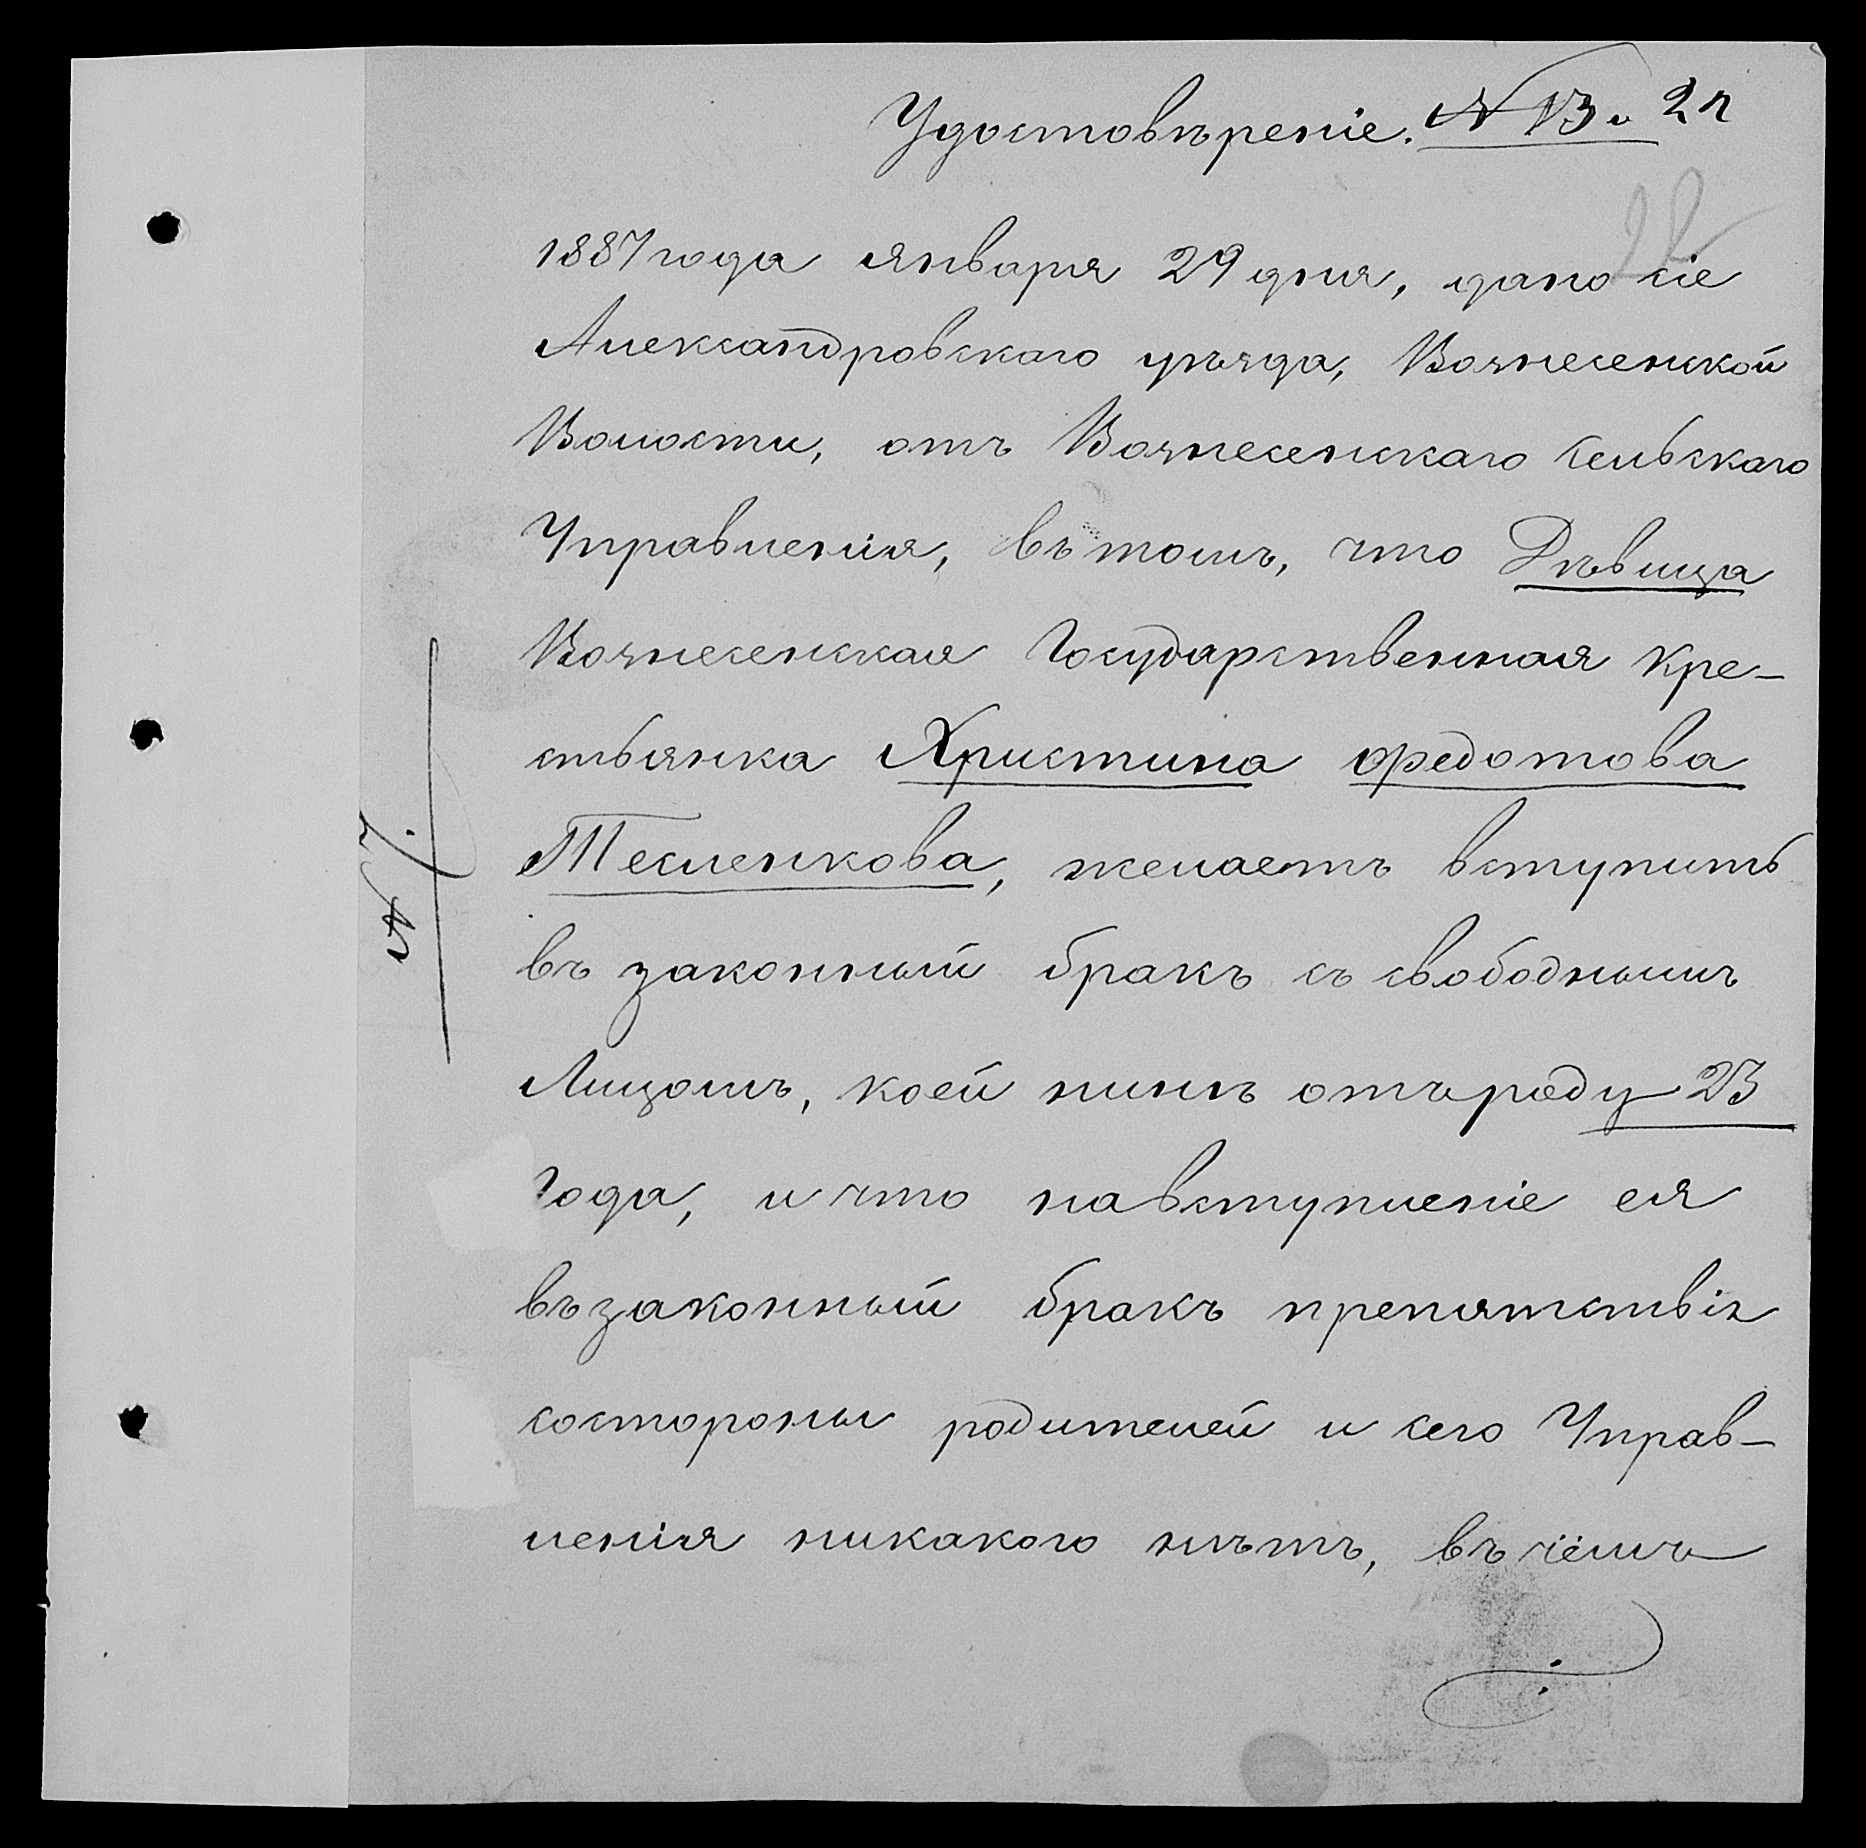 Удостовѣреніе. № 13. 22
22
1887 года января 29 дня, дано сіе
Александровскаго уѣзда, Вознесенской
Волости, отъ Вознесенскаго Сельскаго
Управленія, въ томъ, что Дѣвица
Вознесенская Государственная Кре-
стьянка Христина Ѳедотова
Тесленкова, желаетъ вступить
въ законный бракъ съ свободнымъ
Лицомъ, коей нинѣ отъ роду 23
Года, и что на вступленіе ея
въ законный бракъ препятствія
состороны родителей и сего Управ-
ленія никакого нѣтъ, въ чёмъ